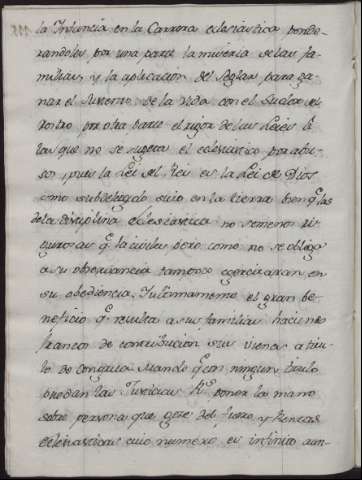 la Infancia en la Carrera eclesiastica ponde-
randoles por una parte la miseria de las fa-
milias, y la aplicacion del Seglar para ga-
nar el sustento de la vida con el Sudor del
rostro, por otra parte el rigor de las Leies á
las que no se sugeta el eclesiastico por abu-
so, pues la Lei del Rei es la Lei de Dios
como subdelegado suio en la tierra bien q.e las
de la disciplina eclesiastica no son menos ri-
gurosas q.e las civiles pero como no se obliga
a su observancia tampoco egercitaran en
su obediencia. Ultimamente el gran be-
neficio q.e resulta a sus familias haciendo
francos de contribucion sus vienes a titu-
lo de congrua quando q.e con ningun titulo
puedan las Justicias R.s poner las manos
sobre persona que goze del fuero, y Rentas
eclesiasticas cuio numero es infinito aun-